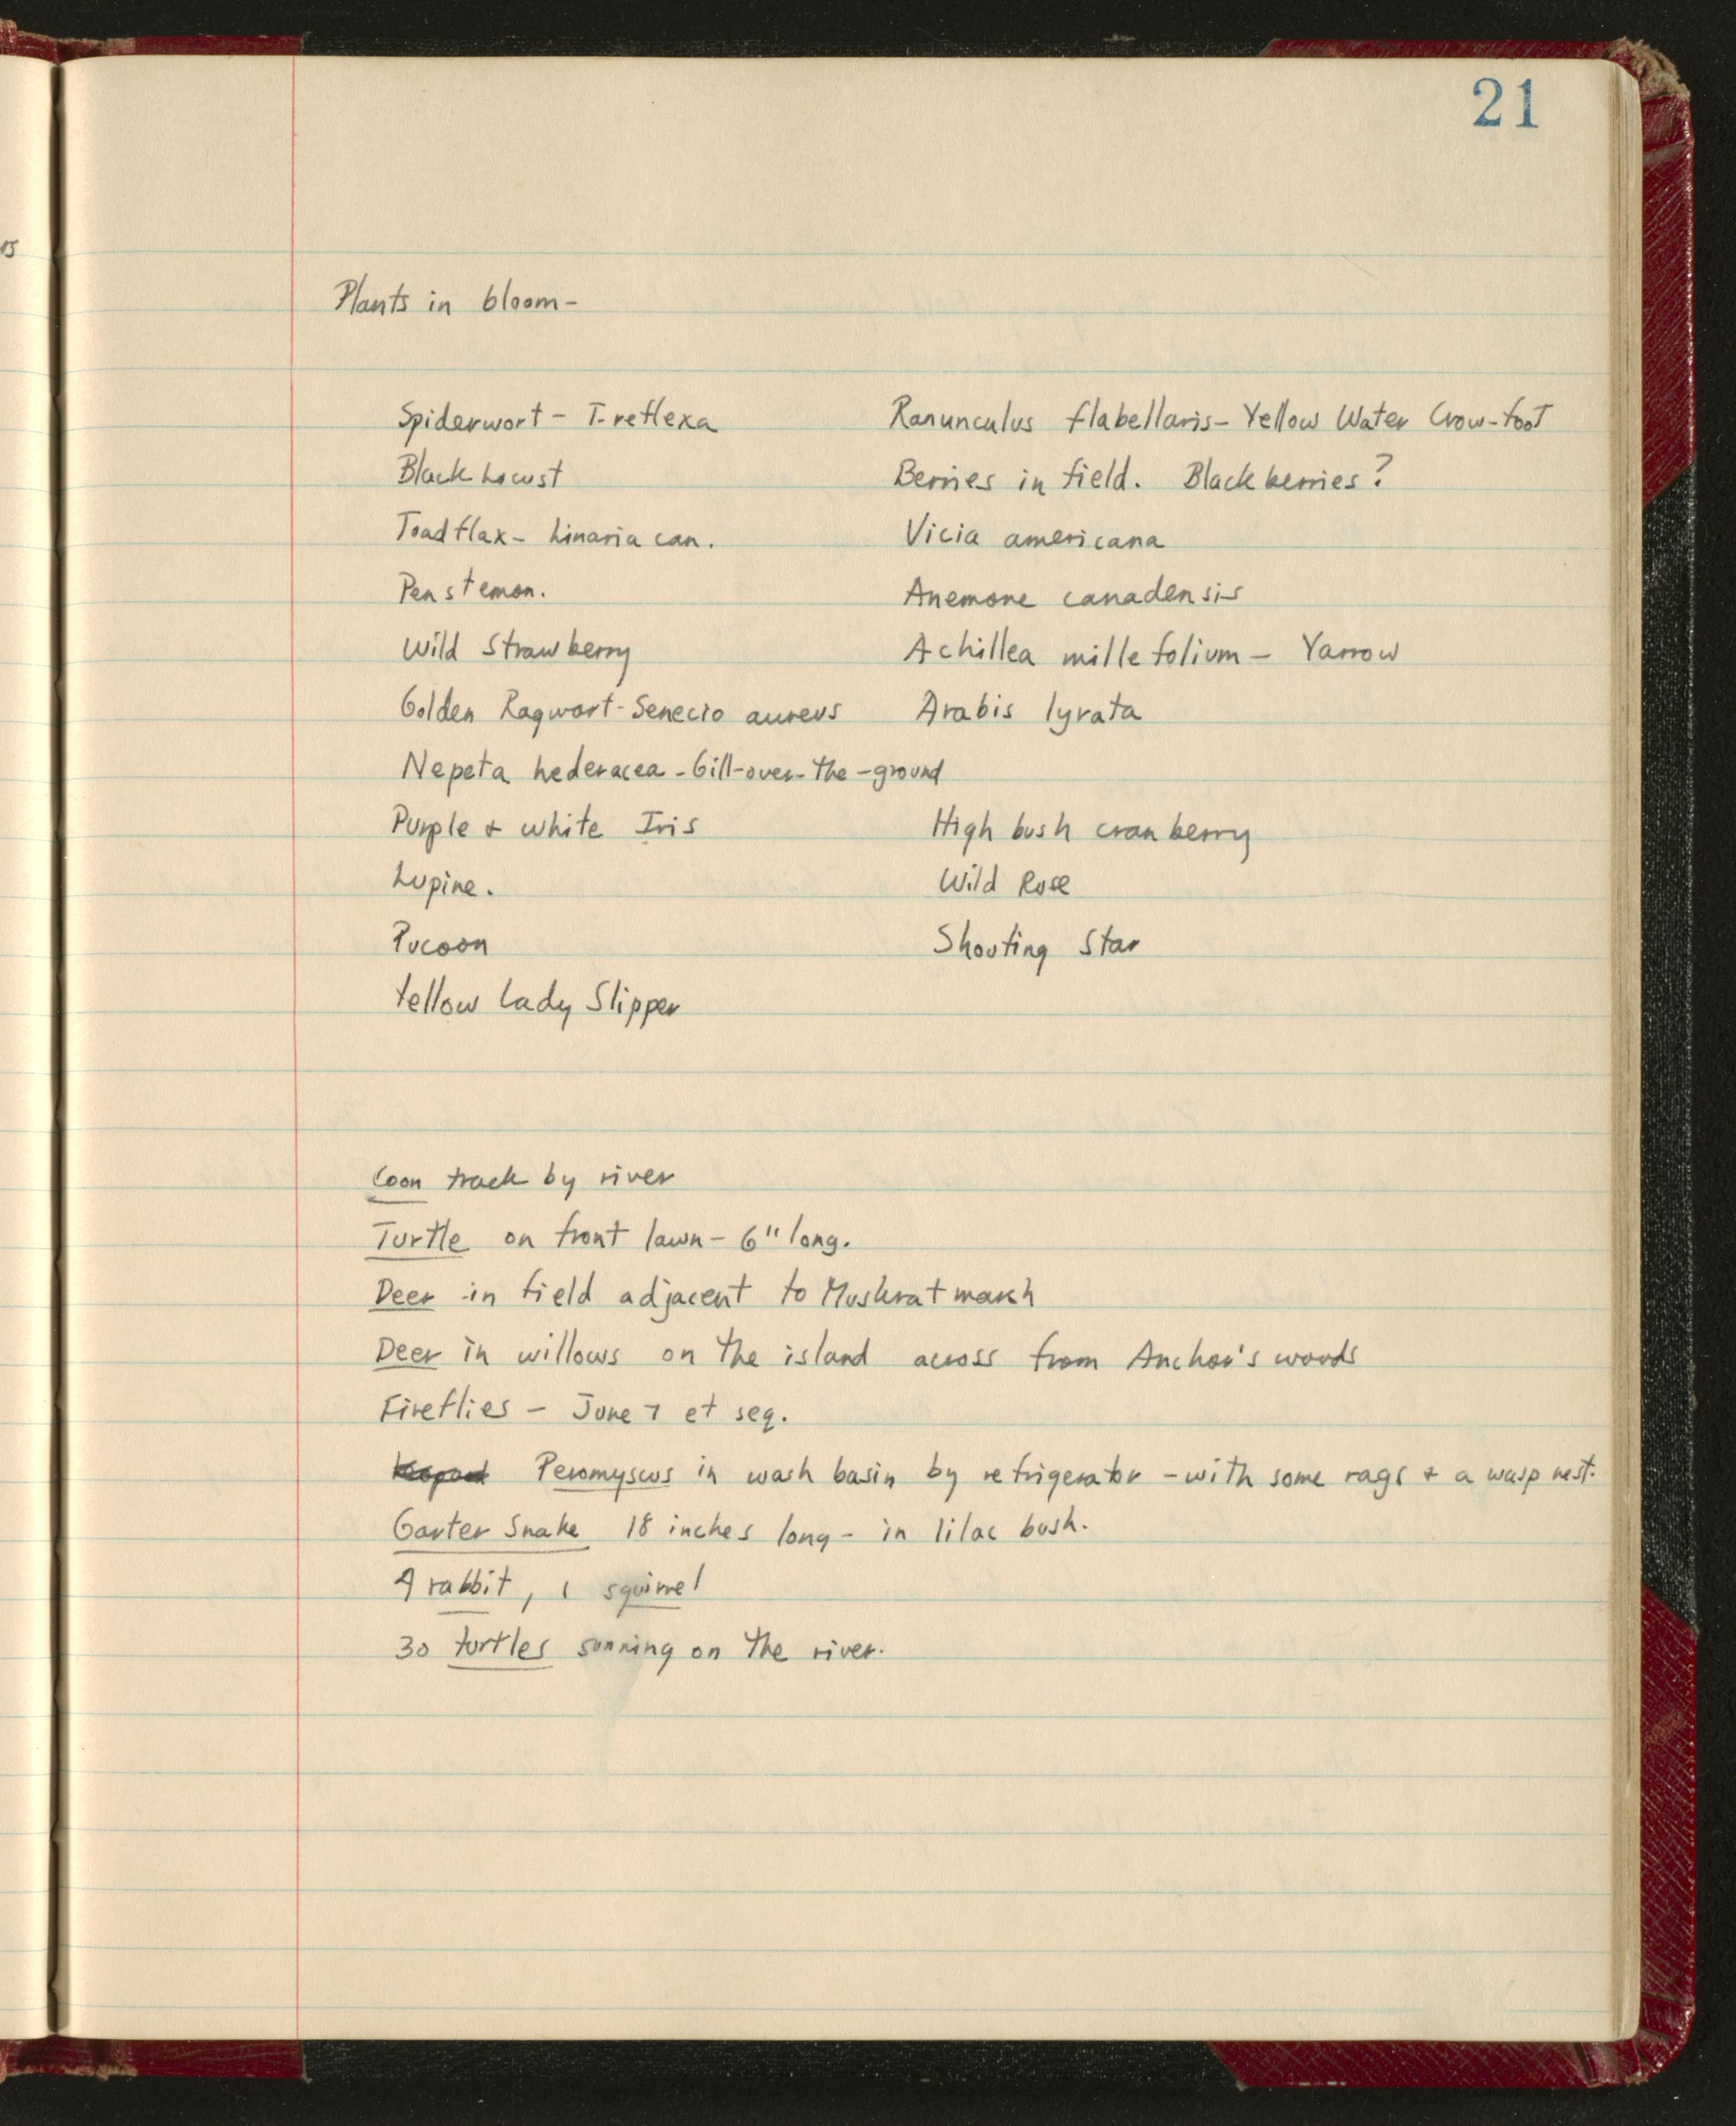 21
Plants in bloom-
Spiderwort - T. reflexa
Black Locust
Toad flax - Linaria can.
Penstemon.
Wild Strawberry
Golden Ragwort - Senecio aureus
Nepeta hederacea - Gill-over-the-ground
Purple & white Iris
Lupine.
Pucoon
Yellow Lady Slipper
Ranunculus flabellaris - Yellow Water Crow-foot
Berries in field. Blackberries?
Vicia americana
Anemone canadensis
Achillea millefolium - Yarrow
Arabis lyrata
High bush cranberry
Wild Rose
Shooting Star
Coon track by river
Turtle on front lawn - 6" long.
Deer in field adjacent to Muskrat marsh
Deer in willows on the island across from Anchor's woods
Fireflies - June 7 et seq.
Peromyscus in wash basin by refrigerator - with some rags & a wasp nest.
Garter Snake 18 inches long - in lilac bush.
rabbit, 1 squirrel
30 turtles sunning on the river.